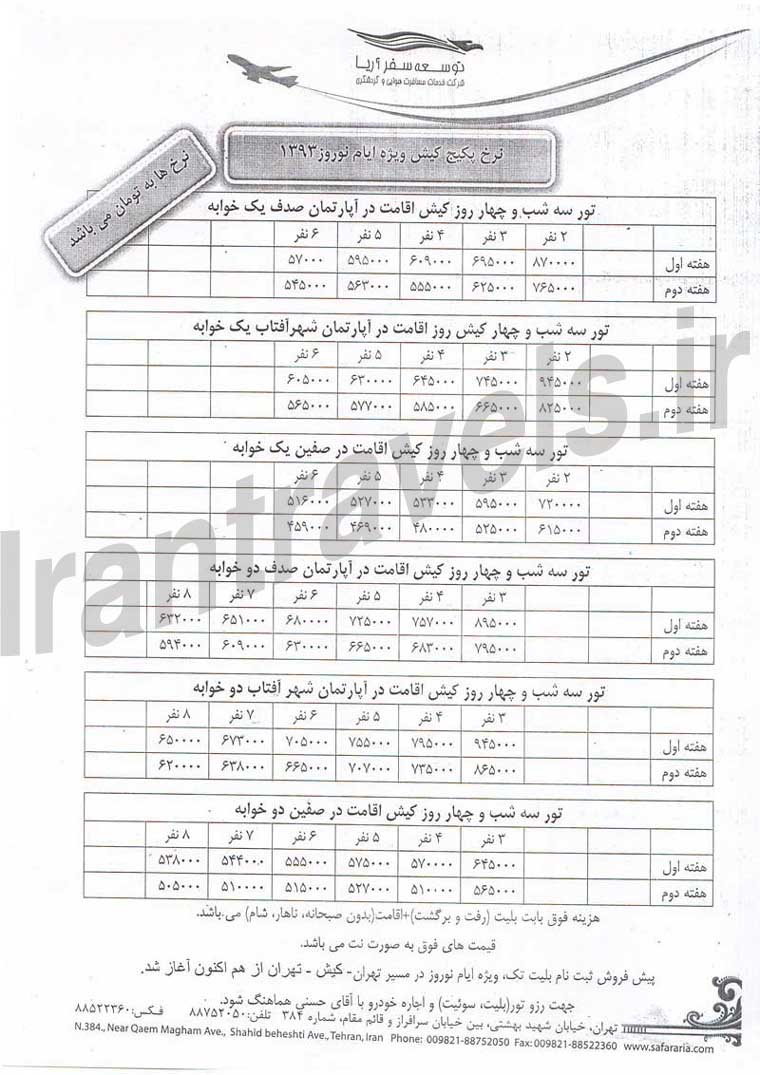 توسعه سفر آریا
شرکت خدمات مسافرت هوایی و گردشگری
نرخ پکیج کیش ویژه ایام نوروز ۱۳۹۳
نرخ ها به تومان می باشد
تور سه شب و چهار روز کیش اقامت در آپارتمان صدف یک خوابه
۲ نفر ۳ نفر ۴ نفر ۵ نفر ۶ نفر
هفته اول ۸۷۰۰۰۰ ۶۹۵۰۰۰ ۶۰۹۰۰۰ ۵۹۵۰۰۰ ۵۷۰۰۰
هفته دوم ۷۶۵۰۰۰ ۶۲۵۰۰۰ ۵۵۵۰۰۰ ۵۶۳۰۰۰ ۵۴۵۰۰۰
تور سه شب و چهار کیش روز اقامت در آپارتمان شهرآفتاب یک خوابه
۲ نفر ۳ نفر ۴ نفر ۵ نفر ۶ نفر
هفته اول ۹۴۵۰۰۰ ۷۴۵۰۰۰ ۶۴۵۰۰۰ ۶۳۰۰۰۰ ۶۰۵۰۰۰
هفته دوم ۸۲۵۰۰۰ ۶۶۵۰۰۰ ۵۸۵۰۰۰ ۵۷۷۰۰۰ ۵۶۵۰۰۰
تور سه شب و چهار روز کیش اقامت در صفین یک خوابه
۲ نفر ۳ نفر ۴ نفر ۵ نفر ۶ نفر
هفته اول ۷۲۰۰۰۰ ۵۹۵۰۰۰ ۵۳۳۰۰۰ ۵۲۷۰۰۰ ۵۱۶۰۰۰
هفته دوم ۶۱۵۰۰۰ ۵۲۵۰۰۰ ۴۸۰۰۰۰ ۴۶۹۰۰۰ ۴۵۹۰۰۰
تور سه شب و چهار روز کیش اقامت در آپارتمان صدف دو خوابه
۳ نفر ۴ نفر ۵ نفر ۶ نفر ۷ نفر ۸ نفر
هفته اول ۸۹۵۰۰۰ ۷۵۷۰۰۰ ۷۲۵۰۰۰ ۶۸۰۰۰۰ ۶۵۱۰۰۰ ۶۳۲۰۰۰
هفته دوم ۷۹۵۰۰۰ ۶۸۳۰۰۰ ۶۶۵۰۰۰ ۶۳۰۰۰۰ ۶۰۹۰۰۰ ۵۹۴۰۰۰
تور سه شب و چهار روز کیش اقامت در آپارتمان شهر آفتاب دو خوابه
۳ نفر ۴ نفر ۵ نفر ۶ نفر ۷ نفر ۸ نفر
هفته اول ۹۴۵۰۰۰ ۷۹۵۰۰۰ ۷۵۵۰۰۰ ۷۰۵۰۰۰ ۶۷۳۰۰۰ ۶۵۰۰۰۰
هفته دوم ۸۶۵۰۰۰ ۷۳۵۰۰۰ ۷۰۷۰۰۰ ۶۶۵۰۰۰ ۶۳۸۰۰۰ ۶۲۰۰۰۰
تور سه شب و چهار روز کیش اقامت در صفین دو خوابه
۳ نفر ۴ نفر ۵ نفر ۶ نفر ۷ نفر ۸ نفر
هفته اول ۶۴۵۰۰۰ ۵۷۰۰۰۰ ۵۷۵۰۰۰ ۵۵۵۰۰۰ ۵۴۴۰۰۰ ۵۳۸۰۰۰
هفته دوم ۵۶۵۰۰۰ ۵۱۰۰۰۰ ۵۲۷۰۰۰ ۵۱۵۰۰۰ ۵۱۰۰۰۰ ۵۰۵۰۰۰
هزینه فوق بابت بلیت (رفت و برگشت)+اقامت(بدون صبحانه، ناهار، شام) می باشد.
قیمت های فوق به صورت نت می باشد.
پیش فروش ثبت نام بلیت تک، ویژه ایام نوروز در مسیر تهران- کیش - تهران از هم اکنون آغاز شد.
جهت رزو تور(بلیت، سوئیت) و اجاره خودرو با آقای حسنی هماهنگ شود.
تهران، خیابان شهید بهشتی، بین خیابان سرافراز و قائم مقام، شماره ۳۸۴ تلفن: ۸۸۷۵۲۰۵۰ فکس: ۸۸۵۲۲۳۶۰
N.384., Near Qaem Magham Ave., Shahid beheshti Ave., Tehran, Iran Phone: 009821-88752050 Fax: 009821-88522360 www.safararia.com
Irantravels.ir